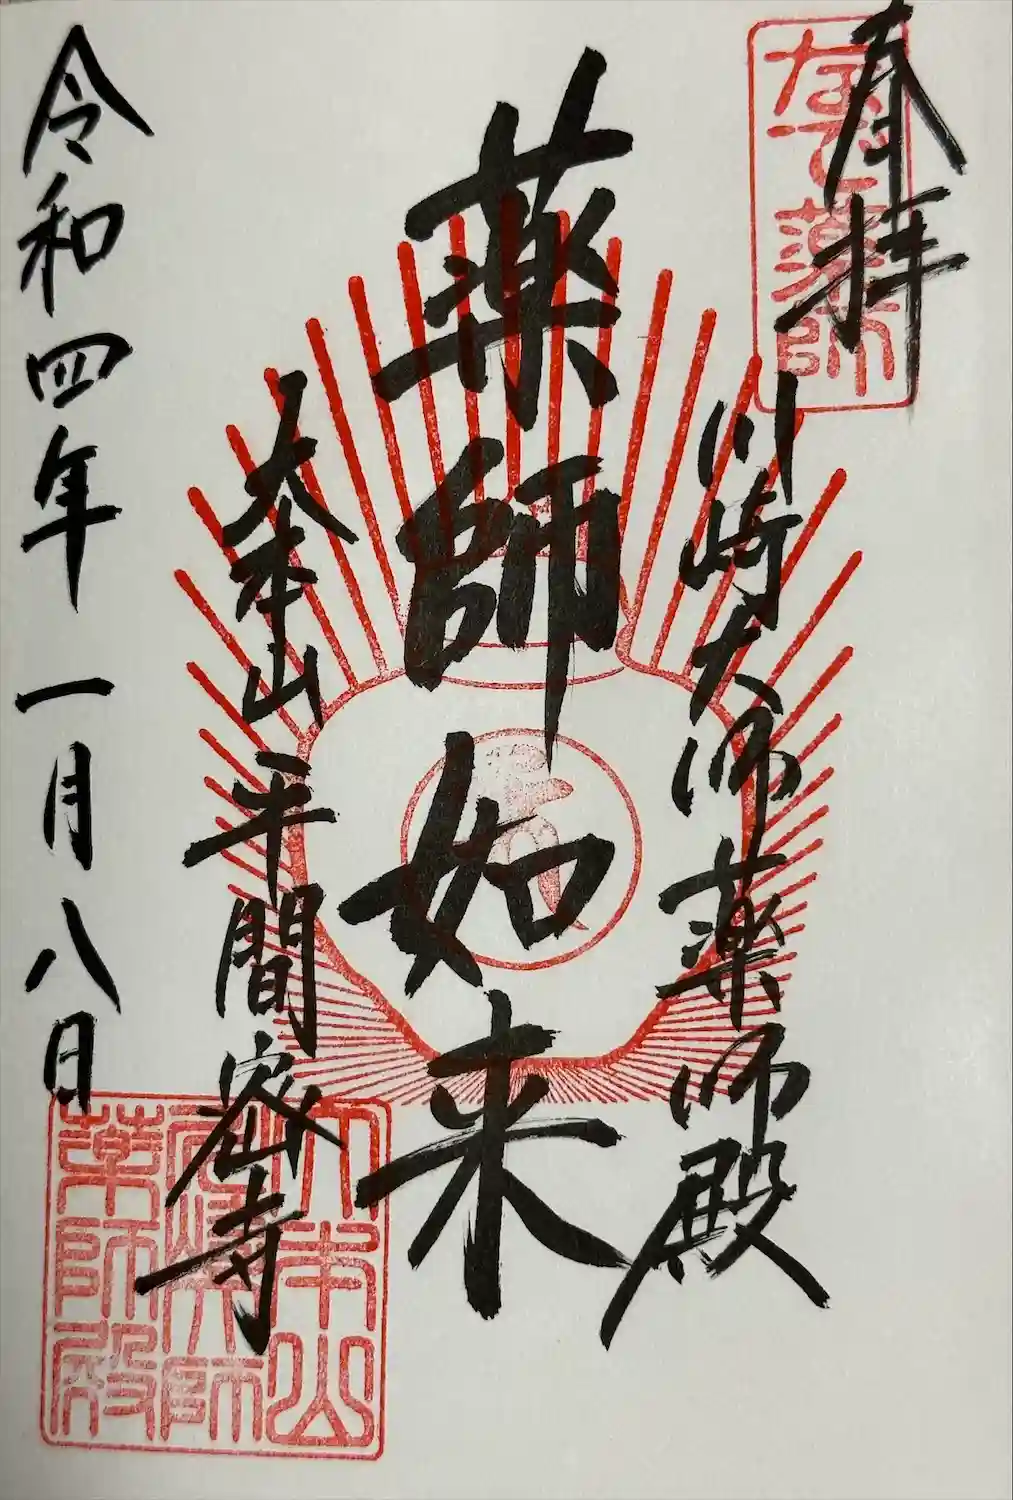 奉拝
なで薬師
川崎大師薬師殿
薬師如来
大本山平間密寺
令和四年一月八日
大本山
川崎大師
薬師殿